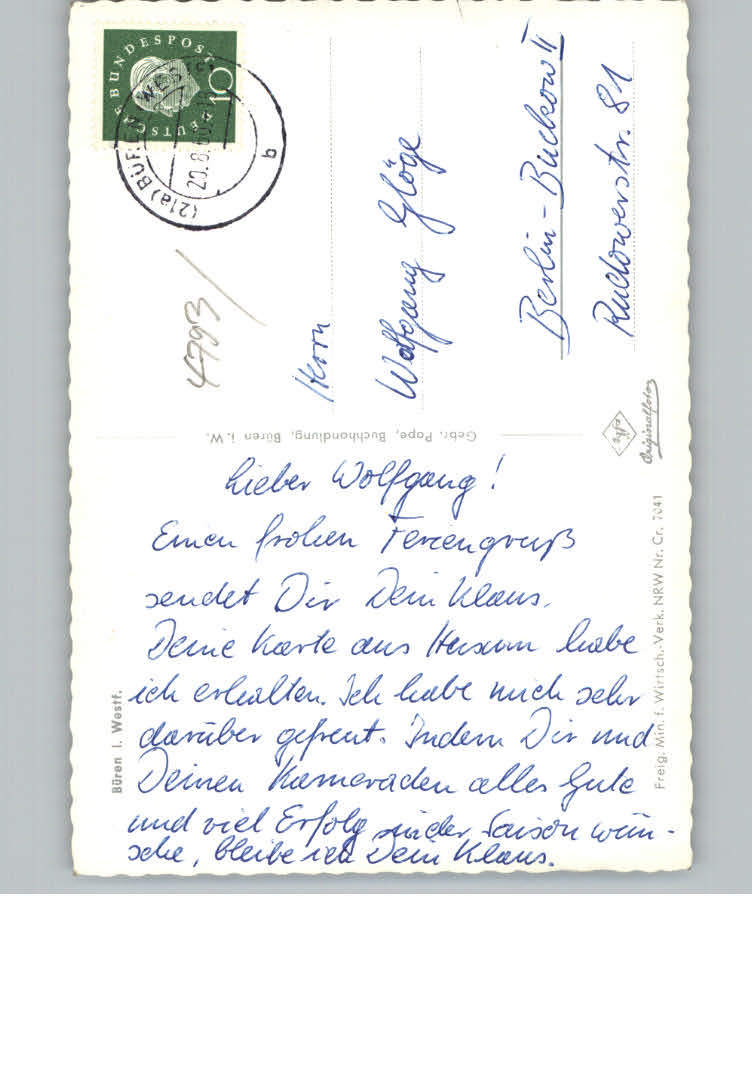 Lieber Wolfgang!
Einen frohen Feriengruß
sendet Dir Dein Klaus.
Deine Karte aus Husum habe
ich erhalten. Ich habe mich sehr
darüber gefreut. Indem Dir und
Deinen Kameraden alles Gute
und viel Erfolg in der Saison wün-
sche, bleibe ich Dein Klaus.
Herrn
Wolfgang Glöge
Berlin-Buckow II
Rudowerstr. 81
DEUTSCHE BUNDESPOST
10
(21a) BÜREN WESTF
20.8.60
b
4793
Gebr. Pape, Buchhandlung, Büren i. W.
Büren i. Westf.
Agfa
Originalfoto
Freig. Min. f. Wirtsch.-Verk. NRW Nr. Cr. 7041